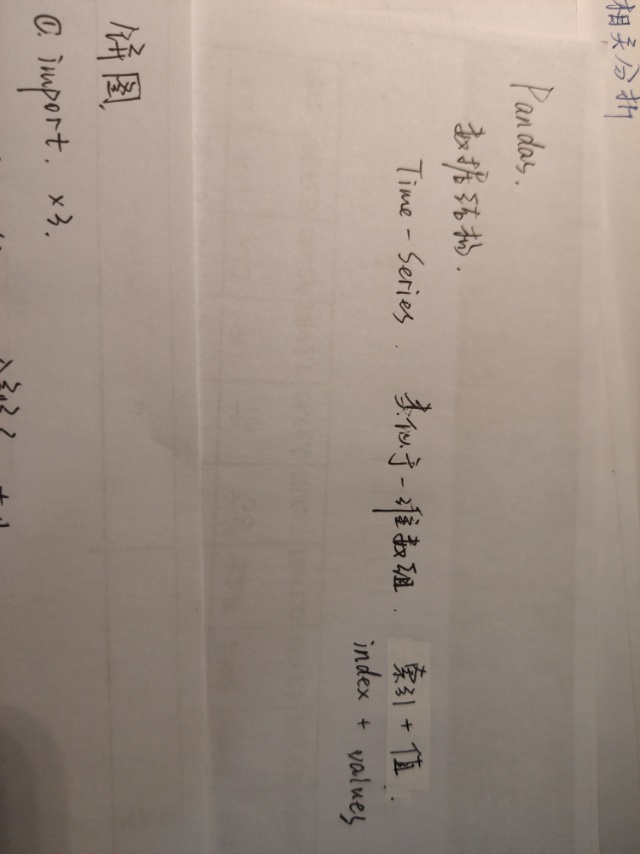 相关分析
Pandas.
数据结构.
Time - Series. 类似于一维数组. 索引 + 值.
index + values
饼图
①. import. ×3.